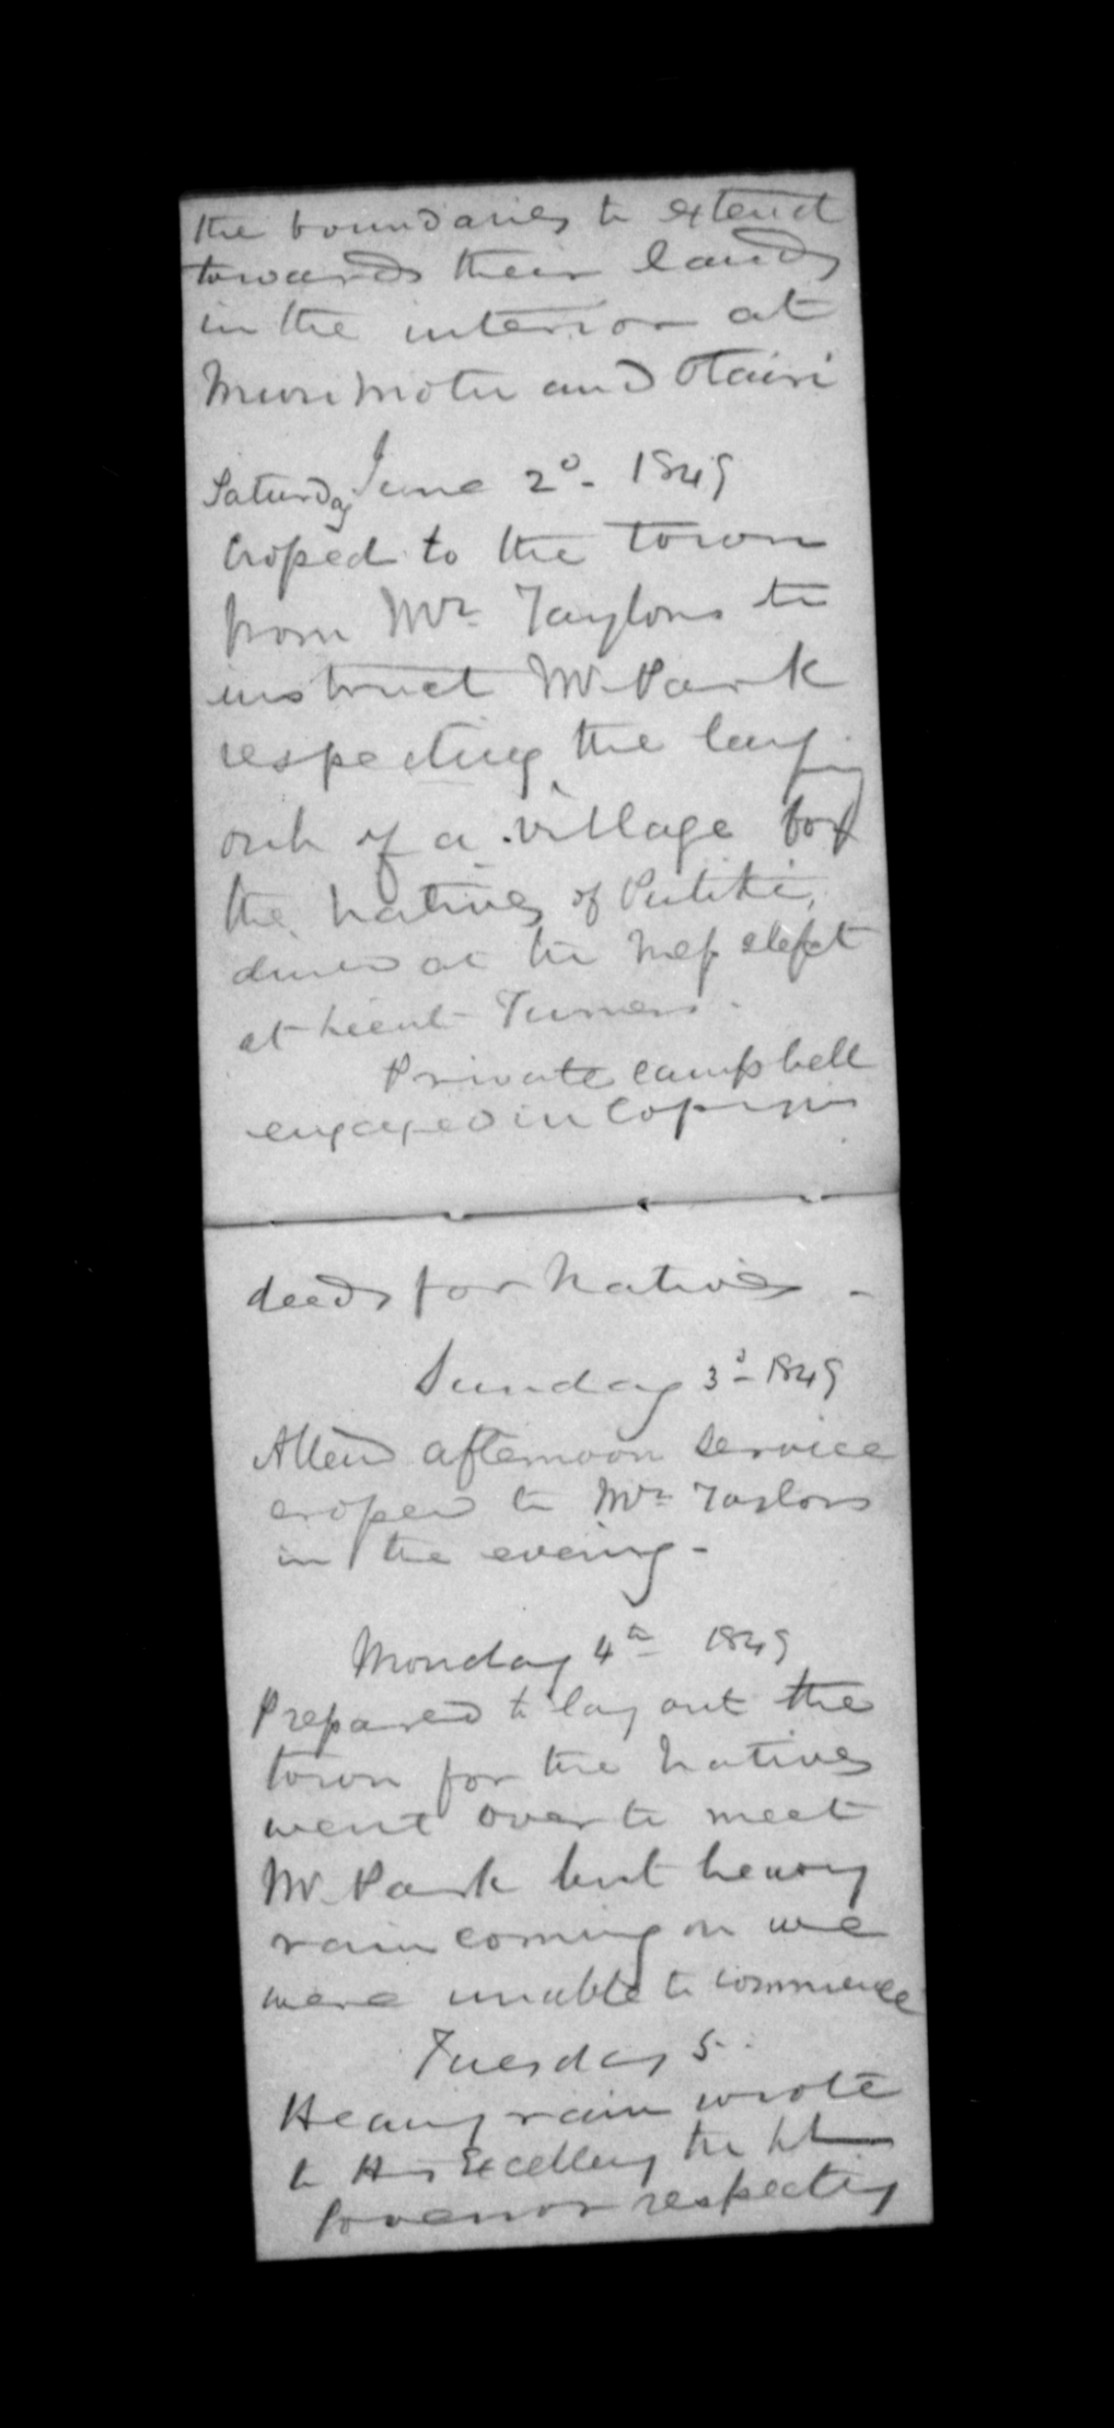 the boundaries to extend
towards their lands
in the interior at
Murimotu and Otairi
Saturday June 2d. 1849
Croped to the town
from Mr. Taylors to
instruct Mr Park
respecting the laying
out of a village for
the natives of Putiki,
dined at the Mess slept
at Lieut Turners.
Private Campbell
engaged in Copying
deeds for Natives -
Sunday 3d 1849
Attend afternoon service
croped to Mr Taylors
in the evening -
Monday 4th 1849
Prepared to lay out the
town for the Natives
went over to meet
Mr Park but heavy
rain coming on we
were unable to commence
Tuesday 5.
Heavy rain wrote
to His Excellency the Lt
Governor respecting